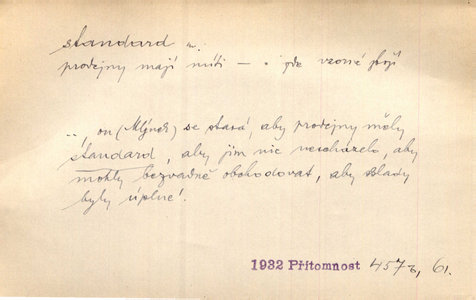 standard m.
prodejny mají míti — . jde vzorné zboží
„, on (Mlýnek) se stará, aby prodejny měly
štandard, aby jim nic nescházelo, aby
mohly bezvadně obchodovat, aby sklady
byly úplné!
1932 Přítomnost 457, 61.